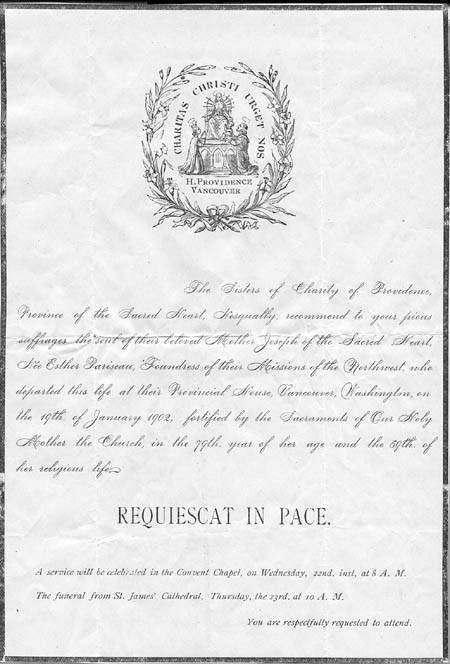 CHARITAS CHRISTI URGET NOS
H. PROVIDENCE
VANCOUVER
The Sisters of Charity of Providence,
Province of the Sacred Heart, Nesqually, recommend to your pious
suffrages the soul of their beloved Mother Joseph of the Sacred Heart,
Née Esther Pariseau, Foundress of their Missions of the Northwest, who
departed this life at their Provincial House, Vancouver, Washington, on
the 19th. of January 1902, fortified by the Sacraments of Our Holy
Mother the Church, in the 79th. year of her age and the 59th. of
her religious life.
REQUIESCAT IN PACE.
A service will be celebrated in the Convent Chapel, on Wednesday, 22nd. inst, at 8 A. M.
The funeral from St. James' Cathedral, Thursday, the 23rd. at 10 A. M.
You are respectfully requested to attend.